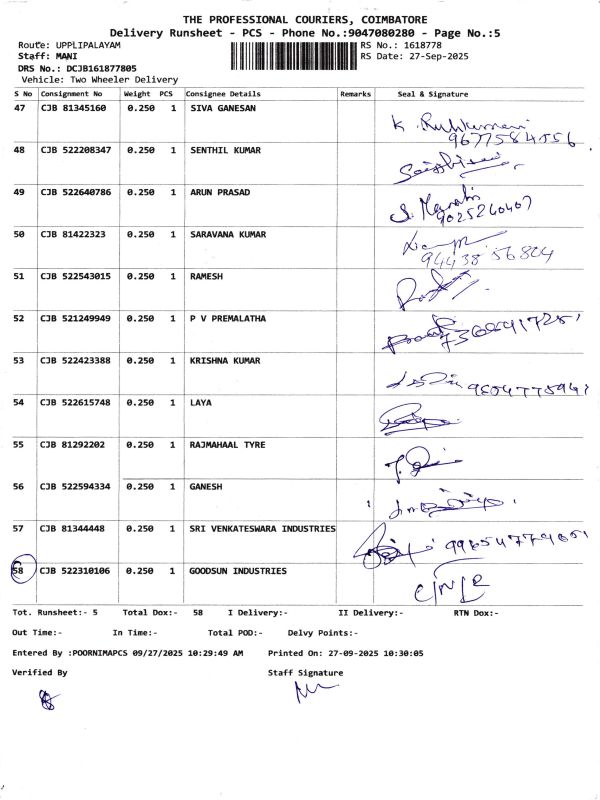 THE PROFESSIONAL COURIERS, COIMBATORE
Delivery Runsheet - PCS - Phone No.:9047080280 - Page No.:5
Route: UPPLIPALAYAM RS No.: 1618778
Staff: MANI RS Date: 27-Sep-2025
DRS No.: DCJB161877805
Vehicle: Two Wheeler Delivery
S No Consignment No Weight PCS Consignee Details Remarks Seal & Signature
47 CJB 81345160 0.250 1 SIVA GANESAN
9677584556
48 CJB 522208347 0.250 1 SENTHIL KUMAR
49 CJB 522640786 0.250 1 ARUN PRASAD
9025260407
50 CJB 81422323 0.250 1 SARAVANA KUMAR
51 CJB 522543015 0.250 1 RAMESH
52 CJB 521249949 0.250 1 P V PREMALATHA
53 CJB 522423388 0.250 1 KRISHNA KUMAR
54 CJB 522615748 0.250 1 LAYA
55 CJB 81292202 0.250 1 RAJMAHAAL TYRE
56 CJB 522594334 0.250 1 GANESH
57 CJB 81344448 0.250 1 SRI VENKATESWARA INDUSTRIES
58 CJB 522310106 0.250 1 GOODSUN INDUSTRIES
Tot. Runsheet:- 5 Total Dox:- 58 I Delivery:- II Delivery:- RTN Dox:-
Out Time:- In Time:- Total POD:- Delvy Points:-
Entered By :POORNIMAPCS 09/27/2025 10:29:49 AM Printed On: 27-09-2025 10:30:05
Verified By Staff Signature